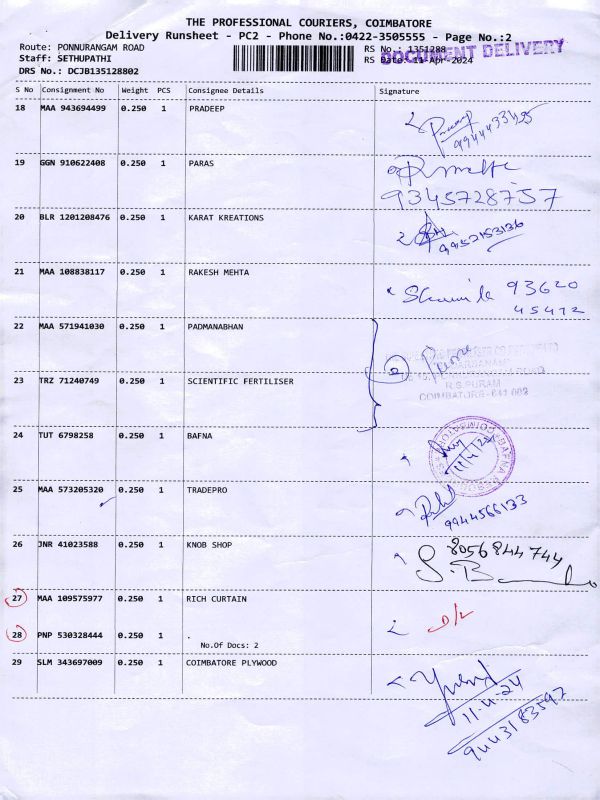 THE PROFESSIONAL COURIERS, COIMBATORE
Delivery Runsheet - PC2 - Phone No.:0422-3505555 - Page No.:2
Route: PONNURANGAM ROAD RS No.: 1351288
Staff: SETHUPATHI RS Date: 11-Apr-2024
DOCUMENT DELIVERY
DRS No.: DCJB135128802
S No Consignment No Weight PCS Consignee Details Signature
18 MAA 943694499 0.250 1 PRADEEP
9944433495
19 GGN 910622408 0.250 1 PARAS
9345728757
20 BLR 1201208476 0.250 1 KARAT KREATIONS
9952153136
21 MAA 108838117 0.250 1 RAKESH MEHTA
93620
45472
22 MAA 571941030 0.250 1 PADMANABHAN
23 TRZ 71240749 0.250 1 SCIENTIFIC FERTILISER
R.S.PURAM
COIMBATORE-641 002
24 TUT 6798258 0.250 1 BAFNA
25 MAA 573205320 0.250 1 TRADEPRO
9944566133
26 JNR 41023588 0.250 1 KNOB SHOP
8056844744
27 MAA 109575977 0.250 1 RICH CURTAIN
D/L
28 PNP 530328444 0.250 1 .
No.Of Docs: 2
29 SLM 343697009 0.250 1 COIMBATORE PLYWOOD
11-4-24
9443183597